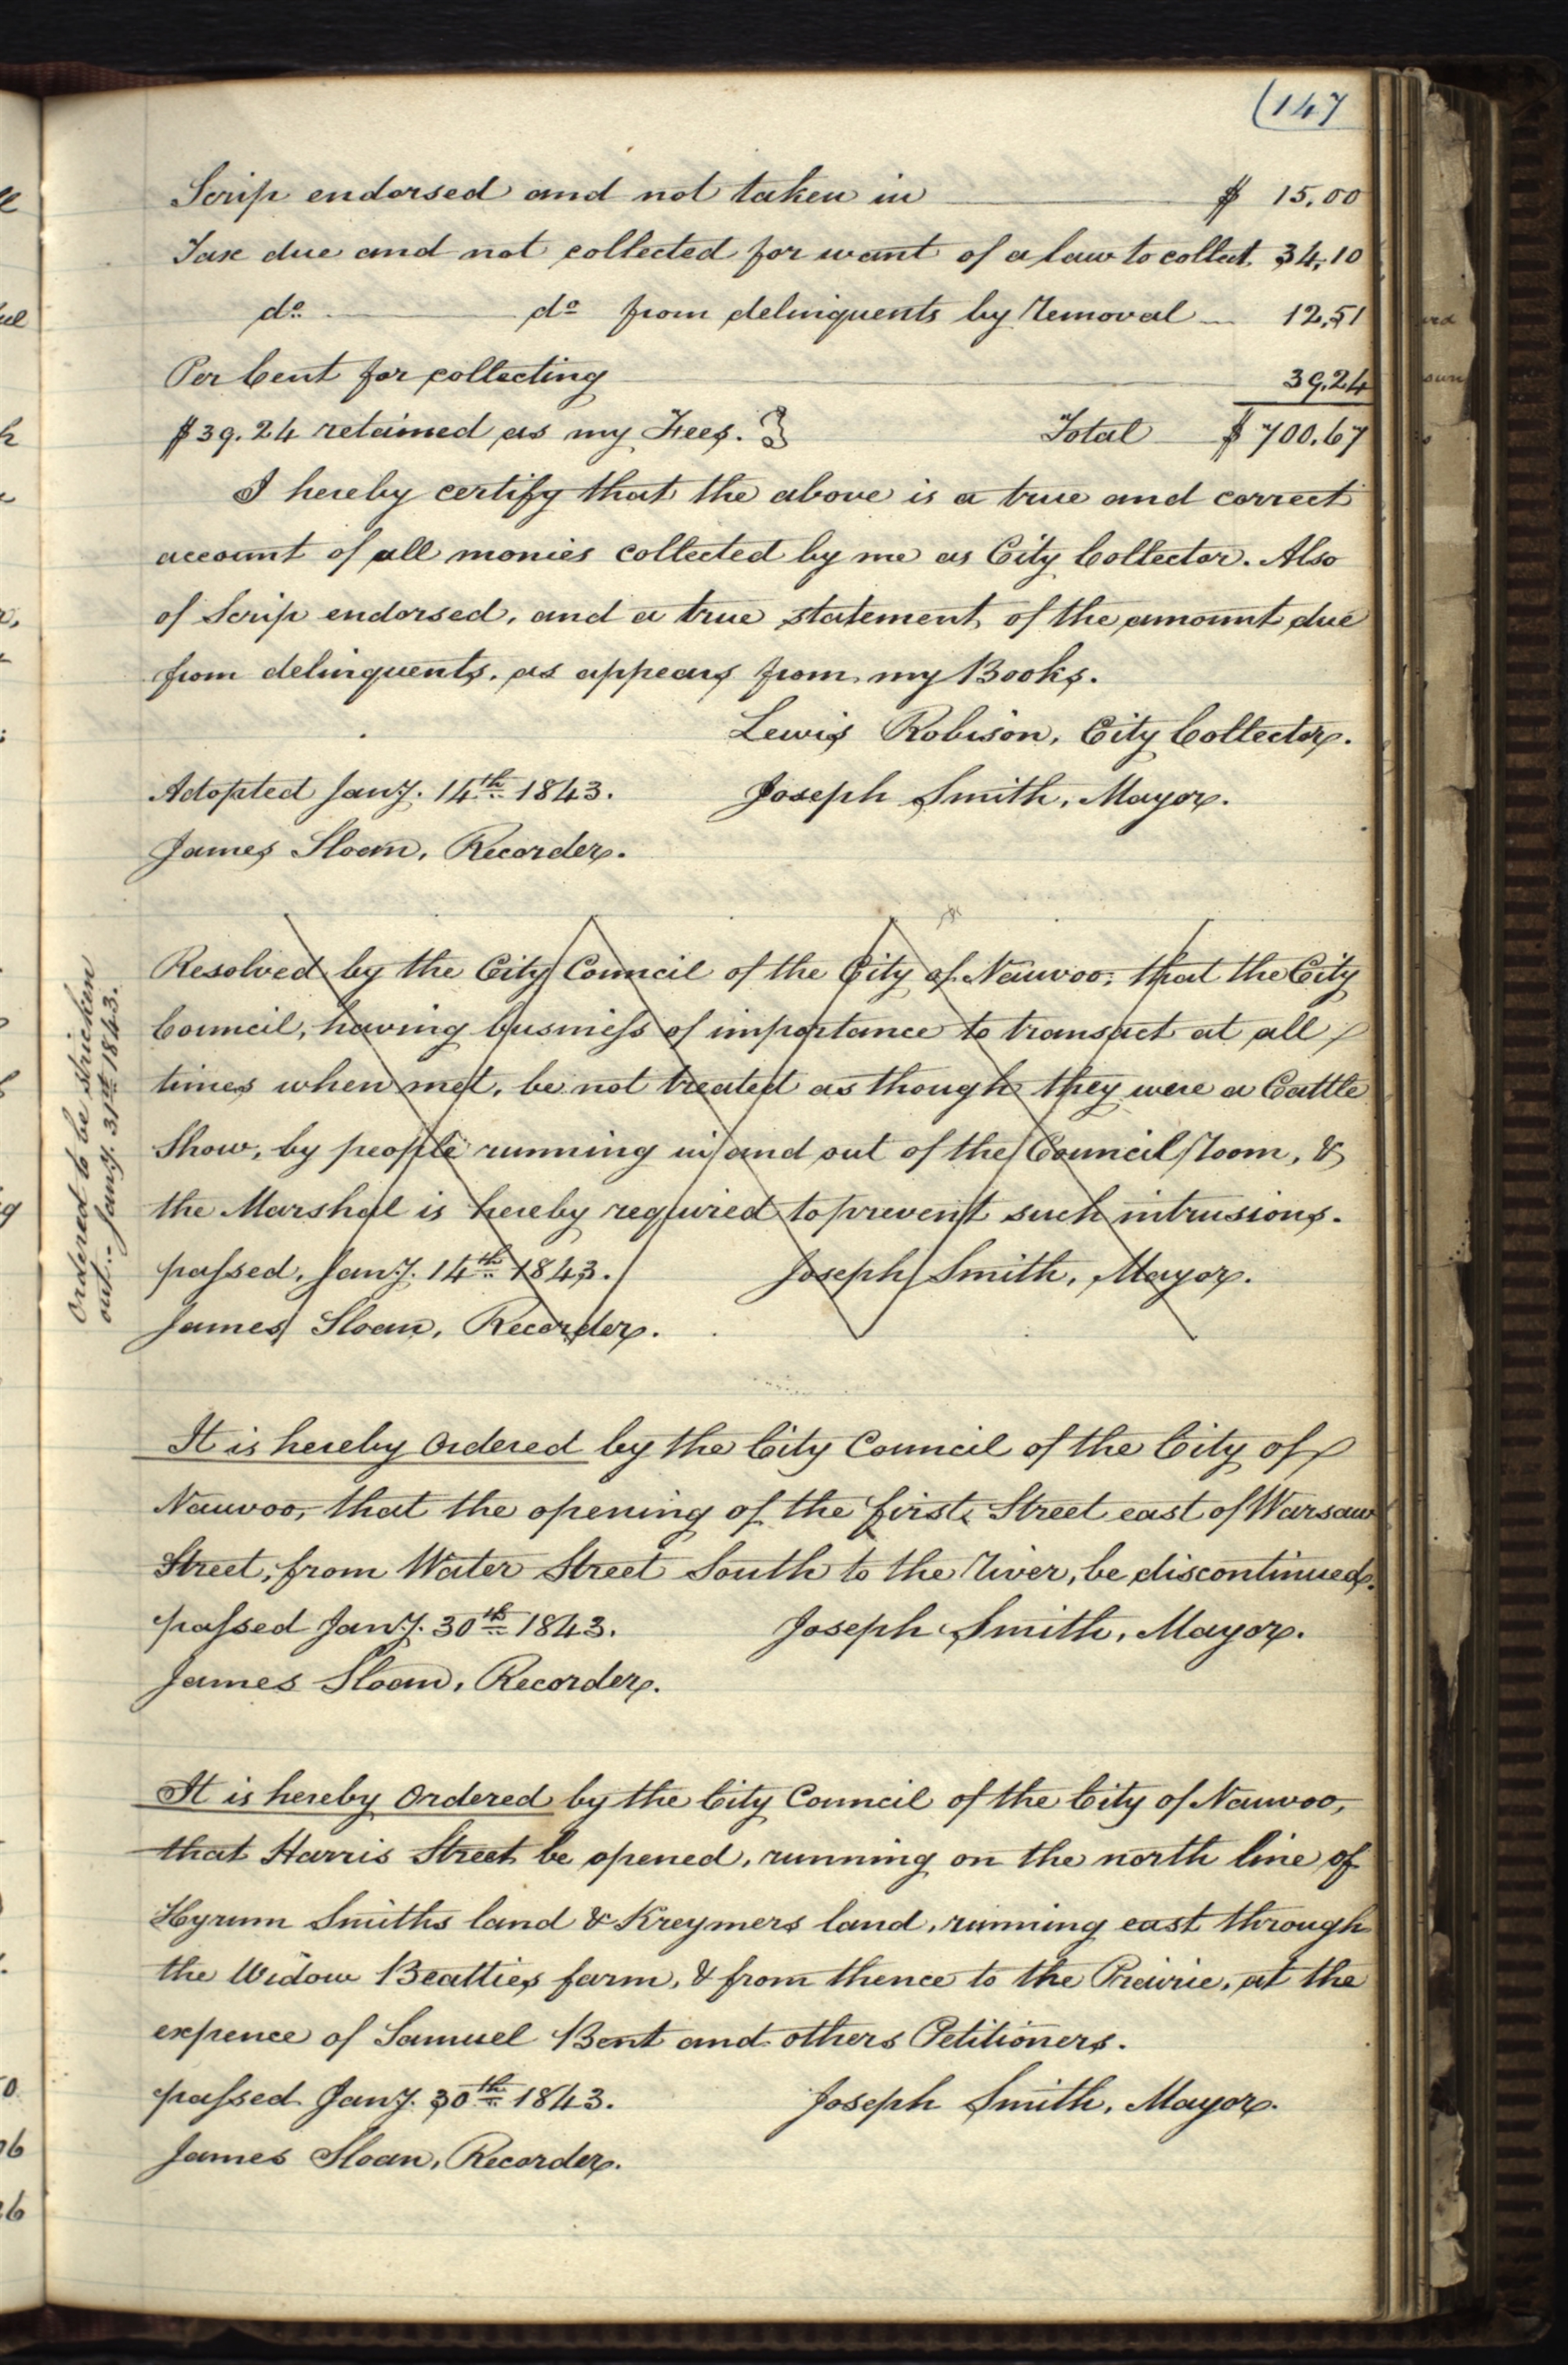 (147
Scrip endorsed and not taken in $ 15.00
Tax due and not collected for want of a law to collect 34,10
do. do from delinquents by removal 12,51
Per Cent for collecting 39.24
$39.24 retained as my Fees. } Total $ 700.67
I hereby certify that the above is a true and correct
account of all monies collected by me as City Collector. Also
of Scrip endorsed, and a true statement of the amount due
from delinquents, as appears from my Books.
Lewis Robison, City Collector.
Adopted Jany. 14th 1843. Joseph Smith, Mayor.
James Sloan, Recorder.
Ordered to be stricken
out.. Jany. 31st 1843.
Resolved by the City Council of the City of Nauvoo, that the City
Council, having business of importance to transact at all
times when met, be not treated as though they were a Cattle
Show, by people running in and out of the Council Room, &
the Marshal is hereby required to prevent such intrusions.
passed, Jany. 14th 1843. Joseph Smith, Mayor.
James Sloan, Recorder.
It is hereby Ordered by the City Council of the City of
Nauvoo, that the opening of the first Street east of Warsaw
Street, from Water Street South to the River, be discontinued.
passed Jany. 30th 1843. Joseph Smith, Mayor.
James Sloan, Recorder.
It is hereby Ordered by the City Council of the City of Nauvoo,
that Harris Street be opened, running on the north line of
Hyrum Smiths land & Kreymers land, running east through
the Widow Beatties farm, & from thence to the Prairie, at the
expence of Samuel Bent and others Petitioners.
passed Jany. 30th 1843. Joseph Smith, Mayor.
James Sloan, Recorder.